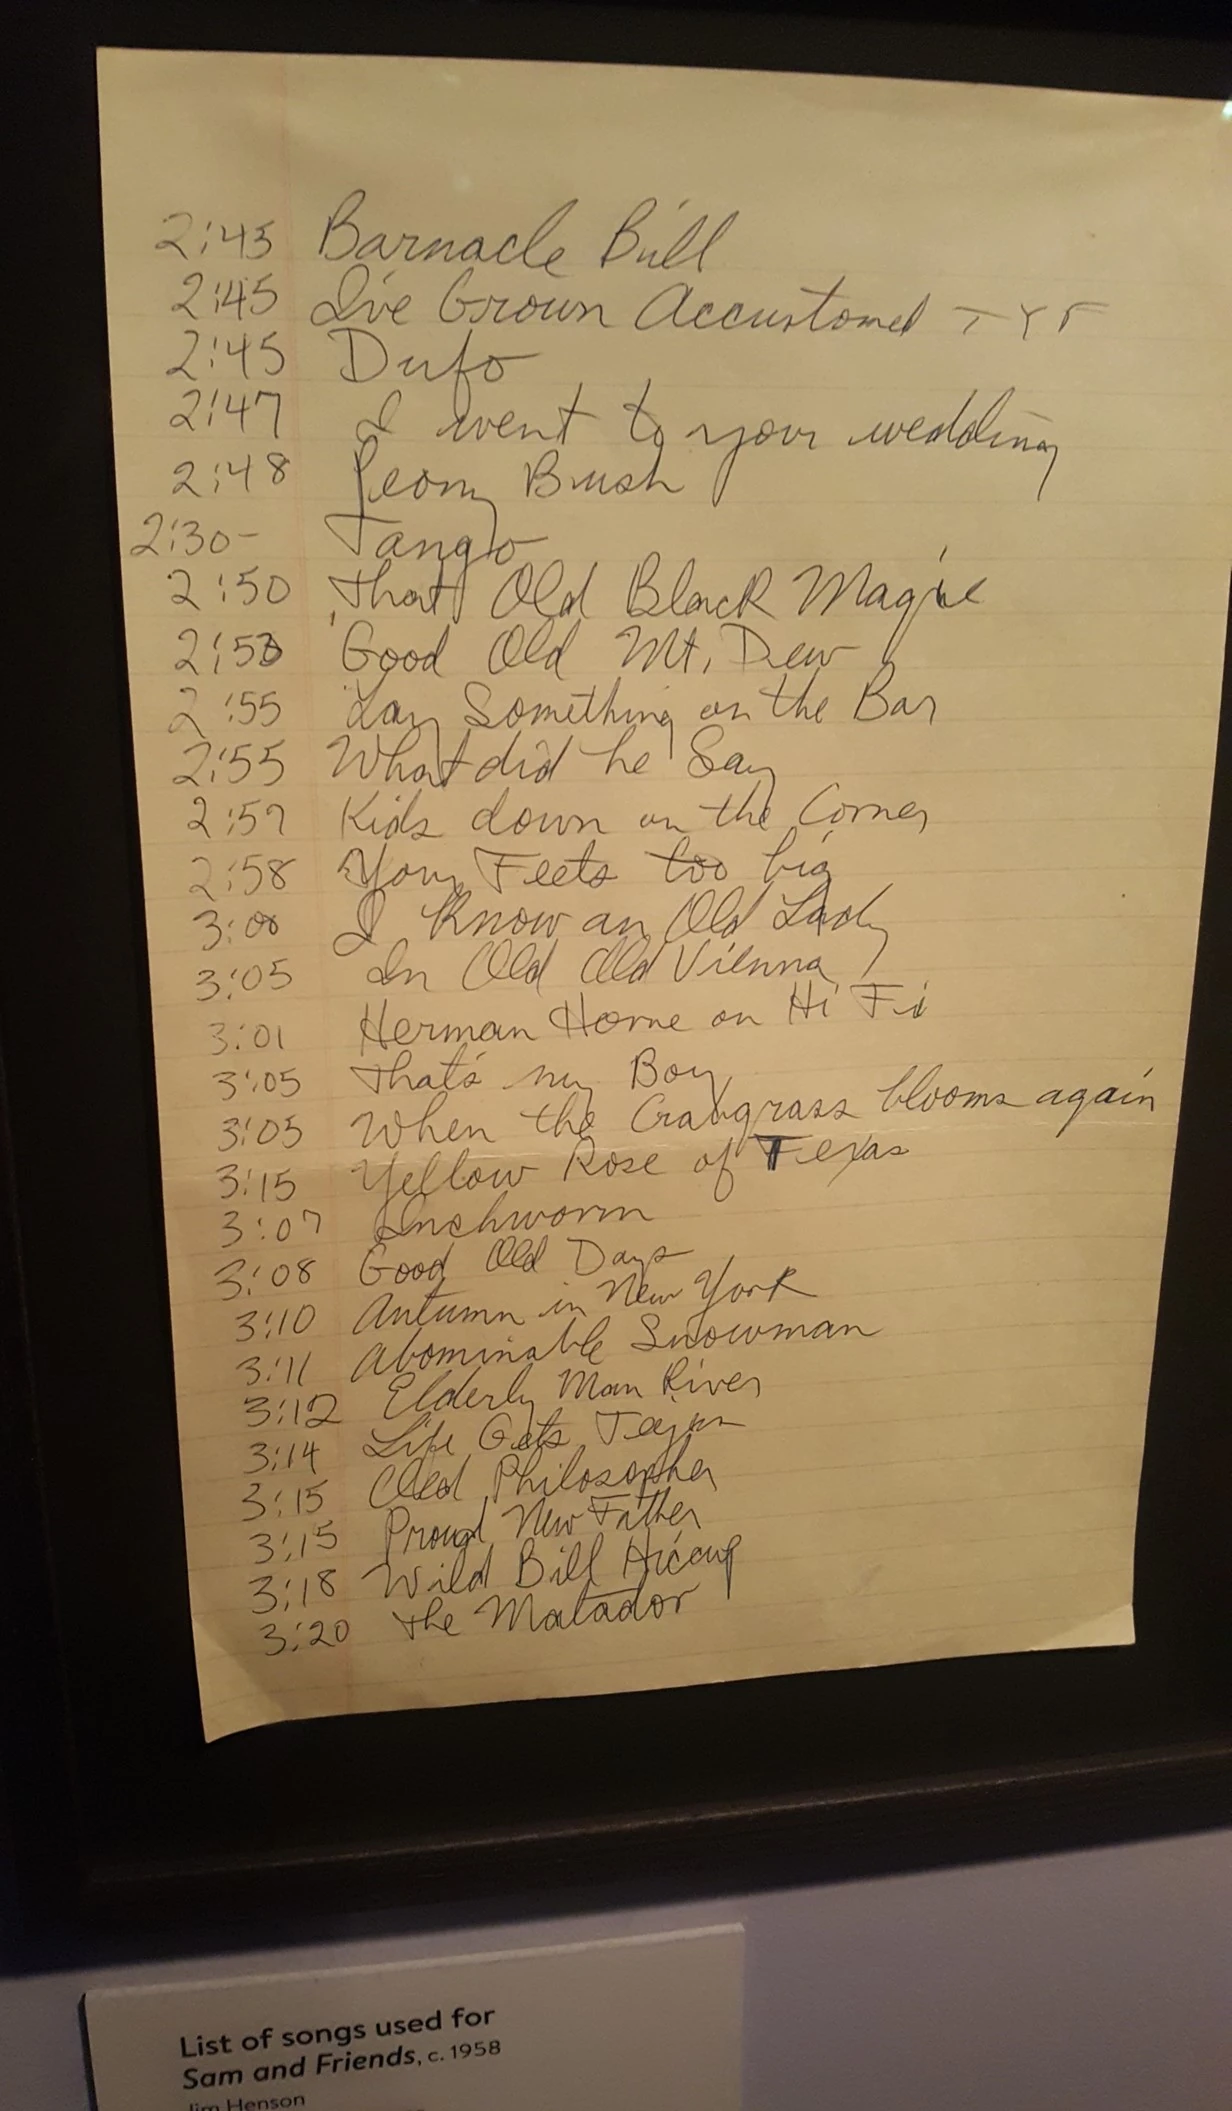 2:45 Barnacle Bill
2:45 I've Grown Accustomed T Y F
2:45 Dufo
2:47 I went to your wedding
2:48 Peony Bush
2:30- Tango
2:50 That Old Black Magic
2:53 Good Old Mt. Dew
2:55 Lay Something on the Bar
2:55 What did he Say
2:57 Kids down on the Corner
2:58 Your Feets too big
3:00 I Know an Old Lady
3:05 In Old Old Vienna
3:01 Herman Horne on Hi Fi
3:05 That's my Boy
3:05 When the Crabgrass blooms again
3:15 Yellow Rose of Texas
3:07 Inchworm
3:08 Good Old Days
3:10 Autumn in New York
3:11 Abominable Snowman
3:12 Elderly Man River
3:14 Life Gets
3:15 Old Philosopher
3:15 Proud New Father
3:18 Wild Bill Hiccup
3:20 The Matador
List of songs used for
Sam and Friends, c. 1958
Jim Henson